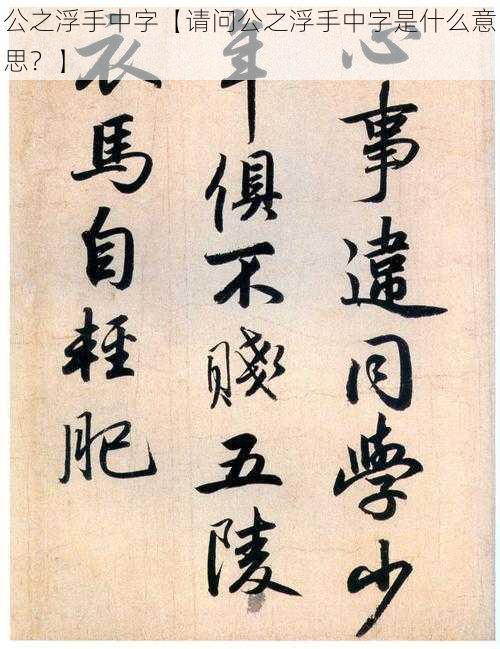 公之浮手中字【请问公之浮手中字是什么意
思？】
心事違同學少
年俱不賤五陵
衣馬自輕肥